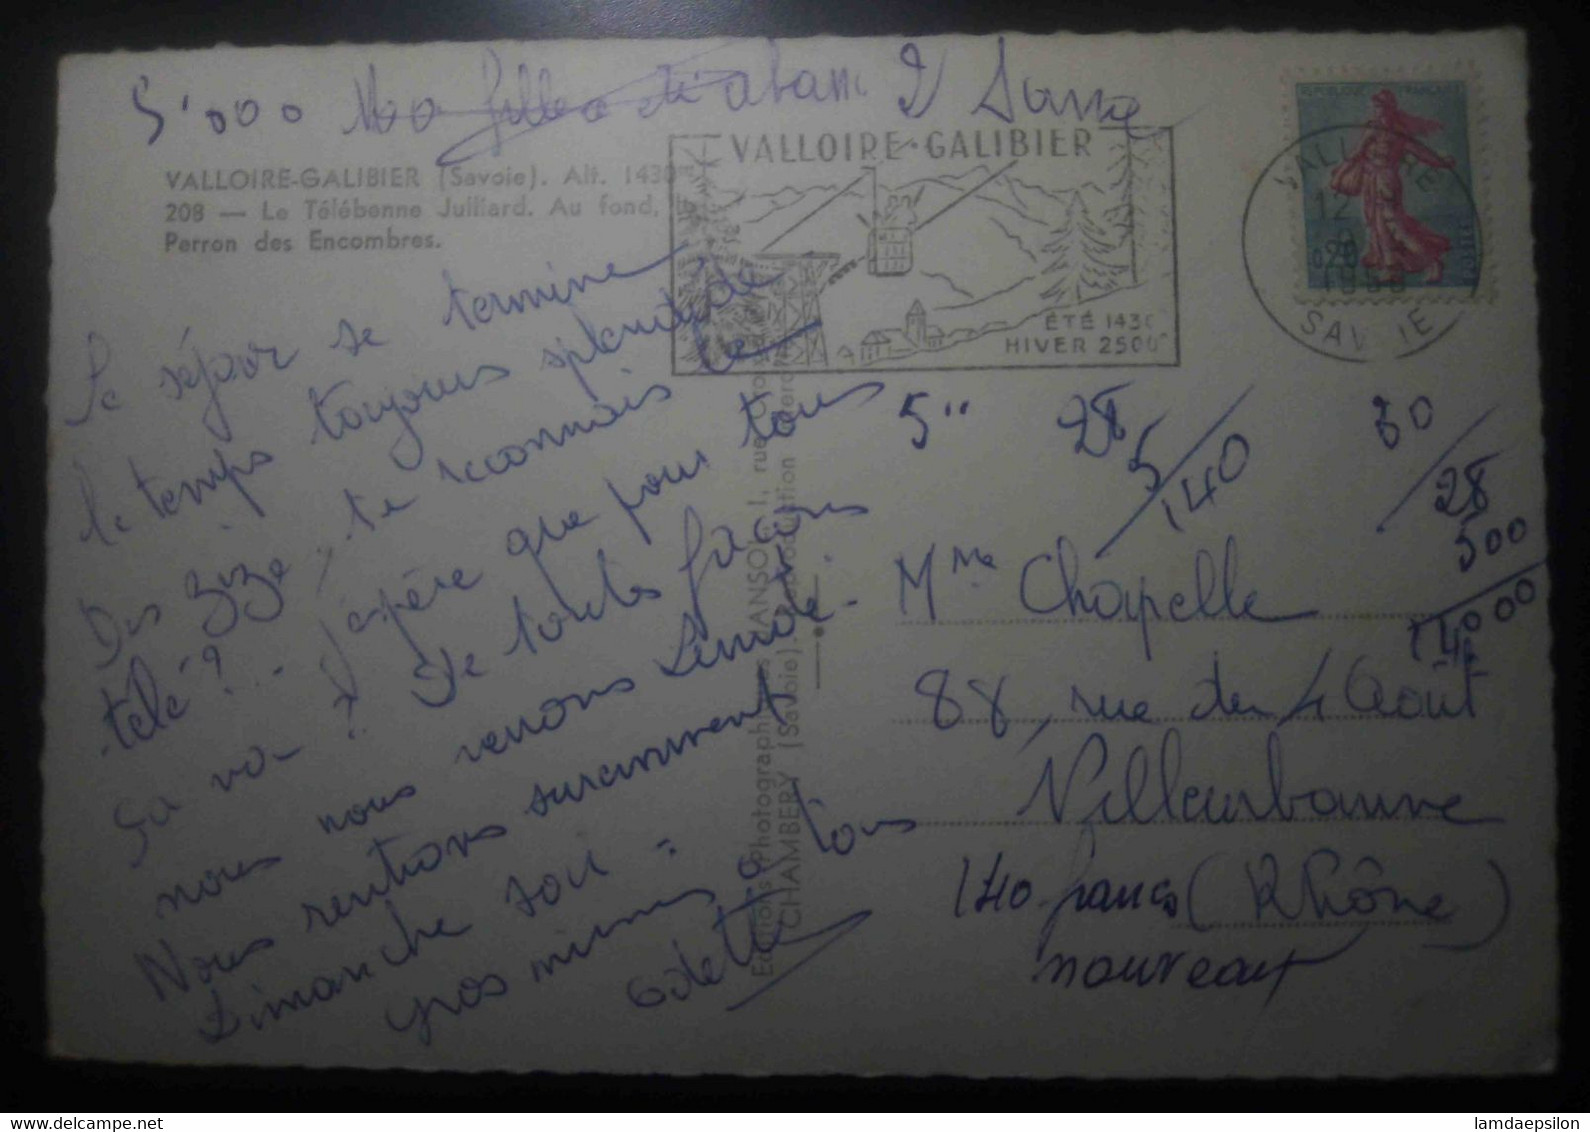 5'000
VALLOIRE-GALIBIER (Savoie). Alt. 1430m
208 — Le Télébenne Julliard. Au fond, le
Perron des Encombres.
VALLOIRE-GALIBIER
ÉTÉ 1430
HIVER 2500
VALLOIRE
12
SAVOIE
0,20
Le séjour se termine
le temps toujours splendide
Des gizé, te reconnais le
télé ?... J'espère que pour tous
ça va ? De toutes façons
nous nous verrons Lundi -
Nous rentrons surement
Dimanche soir =
gros mimis à tous
Odette
5" 28 30
5 28
140 500
14000
Mme Chapelle
88, rue du 4 Août
Villeurbanne
140 francs (Rhône)
nouveaux
CHAMBERY (Savoie). Reproduction
lamdaepsilon - Delcampe.net